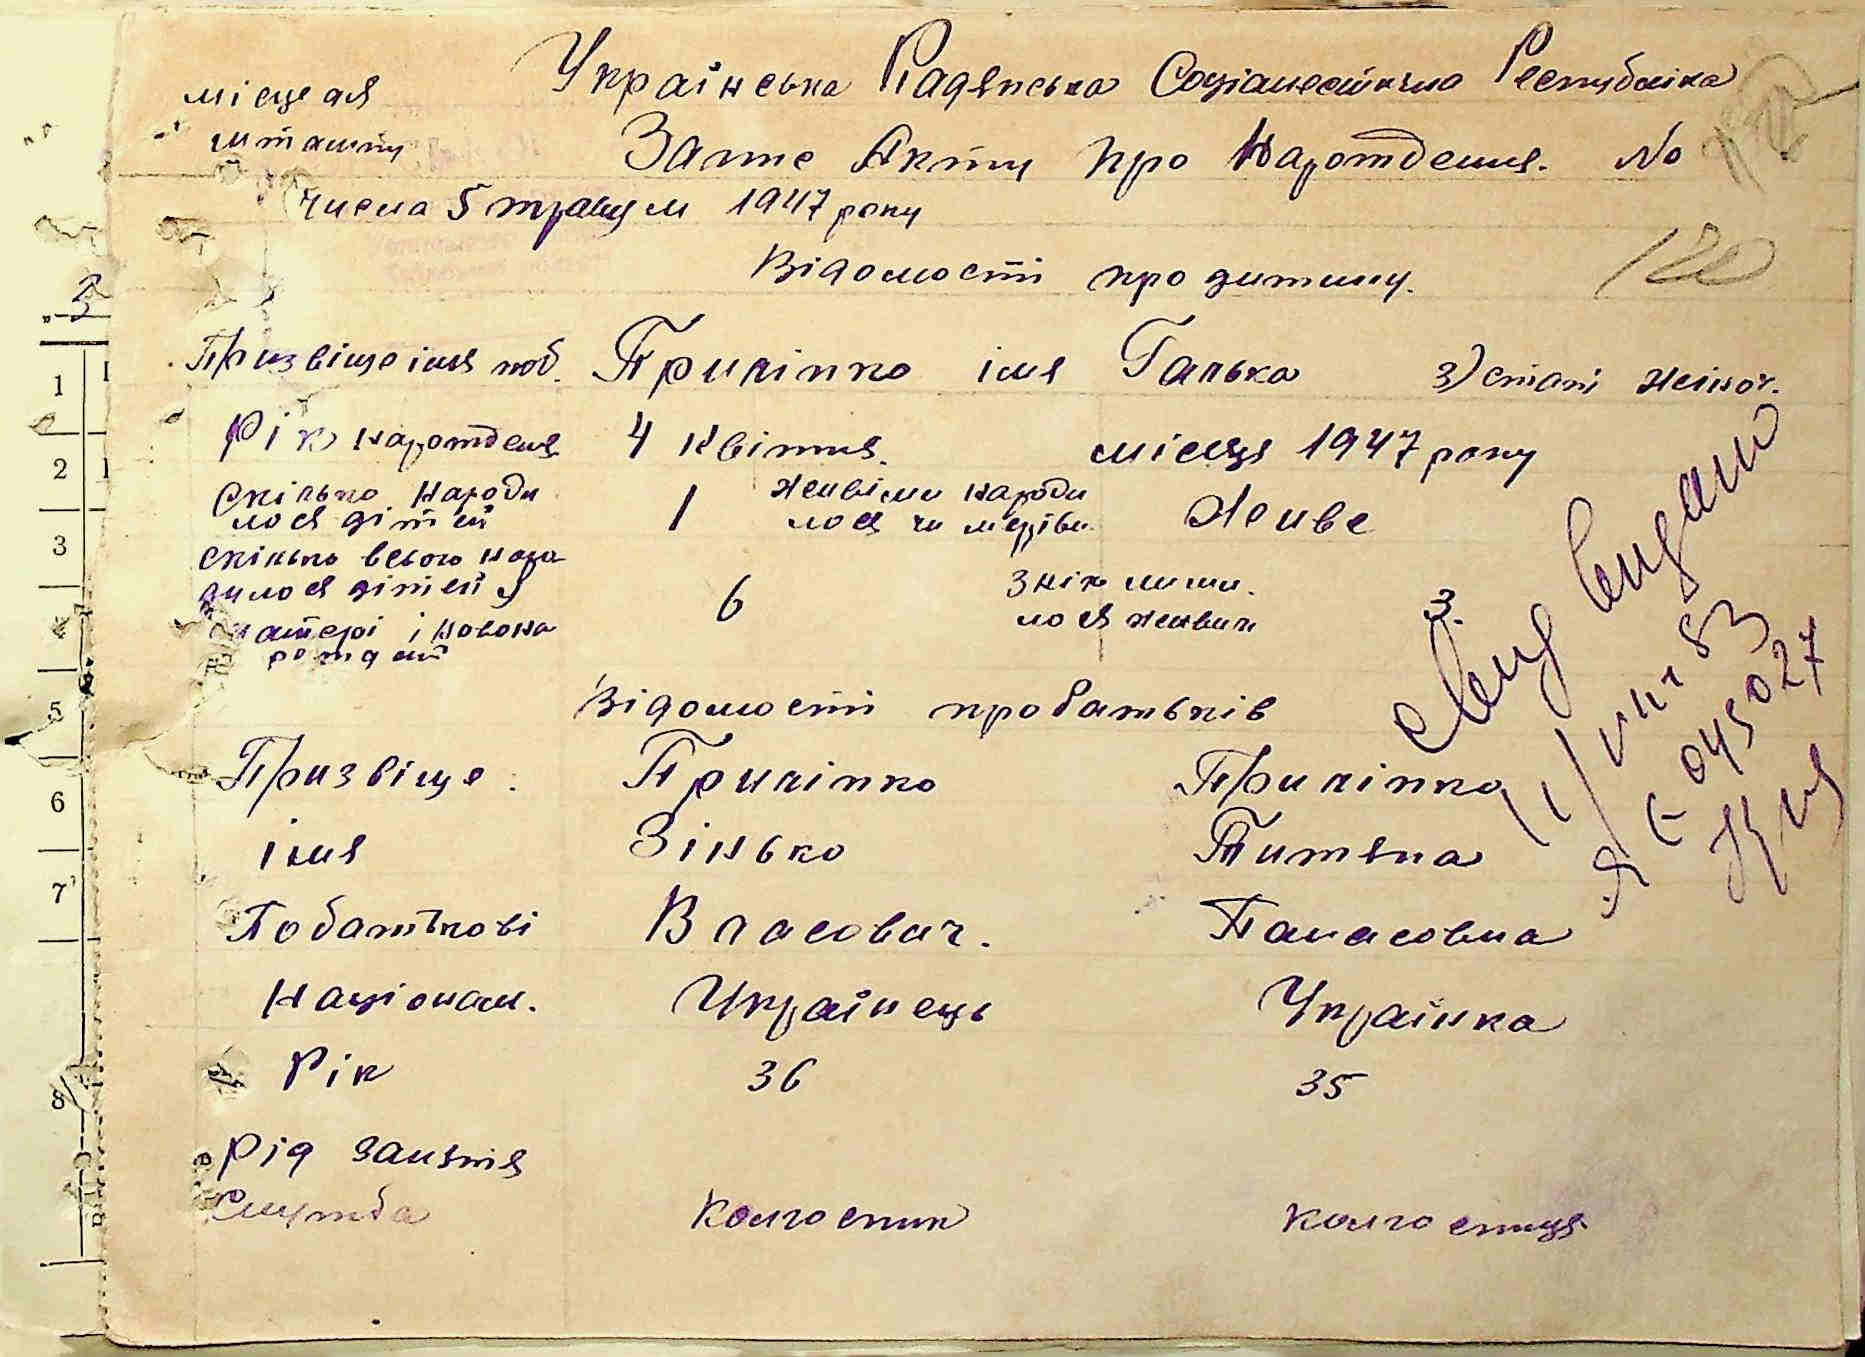 Українська Радянська Соціалестична Республіка
місце для
штампу
Запис Акту про Нарождення. No
Числа 5 травця 1947 року
Відомості про дитину.
Призвіще імя поб. Прилінко імя Галька 3) статі жіноч.
Рік нарождення 4 Квітня. місяця 1947 року
Скілько народи
лося дітей 1 Живіми народи
лося чи мерзіви Живе
Скілько всього наро
дилося дітей у
матері і новона
рожден 6 З них лиши.
лося живих 3.
Відомості про батьків
Призвіще. Прилінко Прилінко
імя Зінько Титяна
Побатькові Власович. Панасовна
Націонал. Українець Українка
Рік 36 35
Рід заняття
Служба Колгоспник колгоспниця
Свид видано
11/VIII 83
Я 045027
1
2
3
5
6
7
8